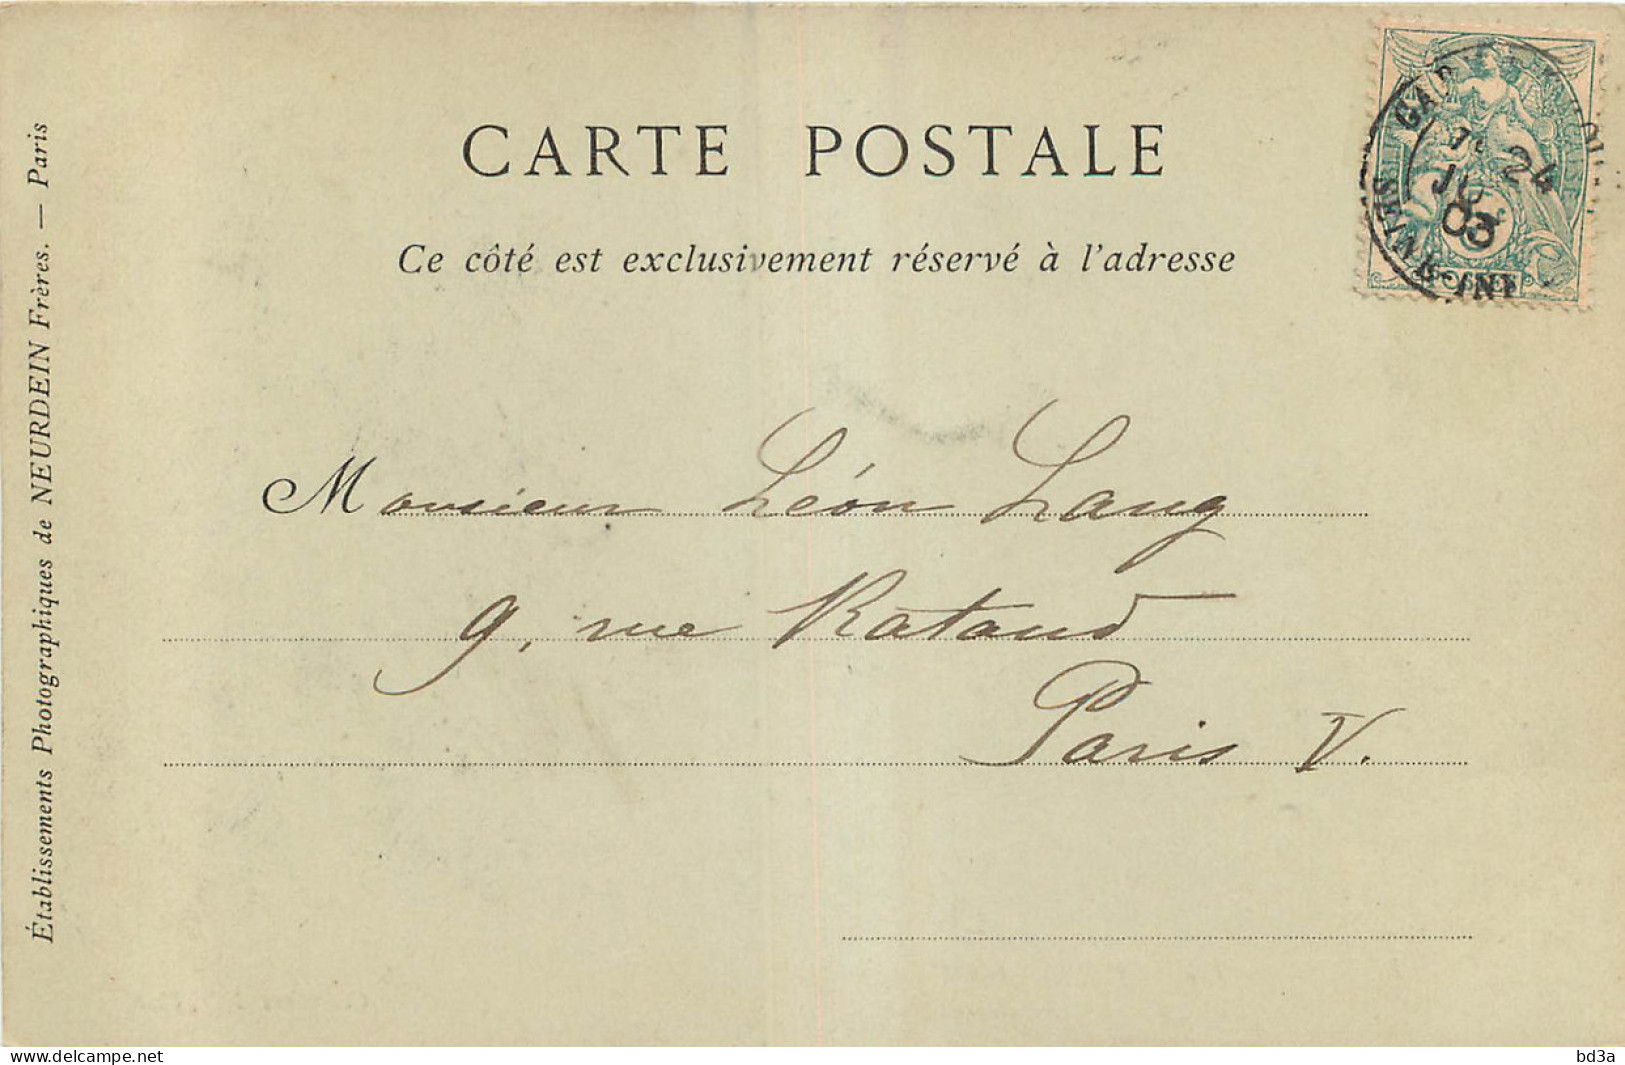 CARTE POSTALE
Ce côté est exclusivement réservé à l'adresse
24
03
POSTES
Monsieur Léon Lang
9, rue Rataud
Paris V.
Établissements Photographiques de NEURDEIN Frères. — Paris
delcampe.net
bd3a